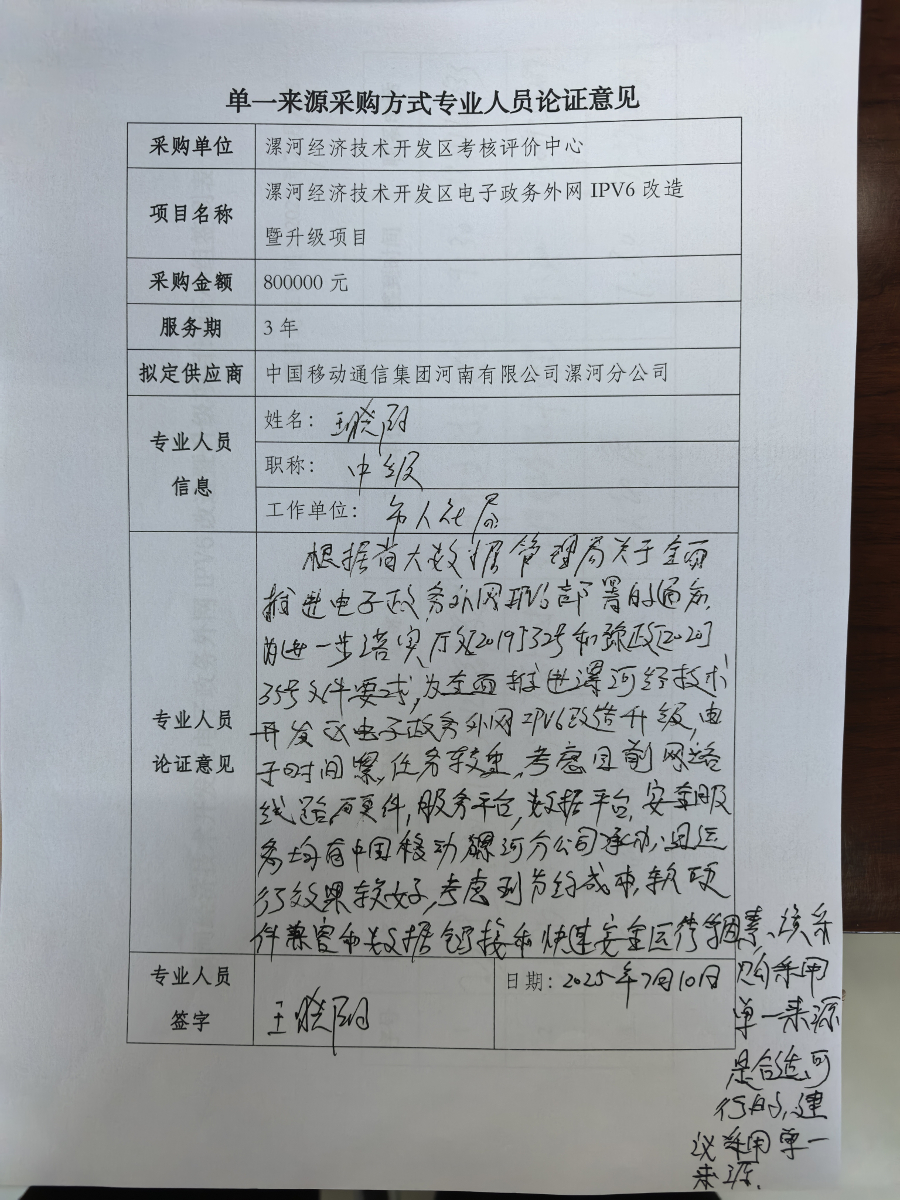 单一来源采购方式专业人员论证意见
采购单位
漯河经济技术开发区考核评价中心
项目名称
漯河经济技术开发区电子政务外网 IPV6 改造
暨升级项目
采购金额
800000 元
服务期
3 年
拟定供应商
中国移动通信集团河南有限公司漯河分公司
专业人员
信息
姓名：王晓阳
职称：中级
工作单位：市人社局
专业人员
论证意见
根据省大数据管理局关于全面
推进电子政务外网IPV6部署的通知,
为进一步落实厅文[2019]32号和豫政[2020]
35号文件要求,为全面推进漯河经技术
开发区电子政务外网IPV6改造升级,由
于时间紧,任务较重,考虑目前网络
线路,硬件,服务平台,数据平台,安全服
务均有中国移动漯河分公司承办,且运
行效果较好,考虑到节约成本,软硬
件兼容和数据链接和快速安全运行等因素,该采
购采用
单一来源
是合适可
行的,建
议采用单一
来源.
专业人员
签字
王晓阳
日期：2025年7月10日